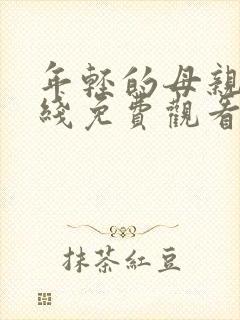 年轻的母親
綫免費觀看
抹茶紅豆